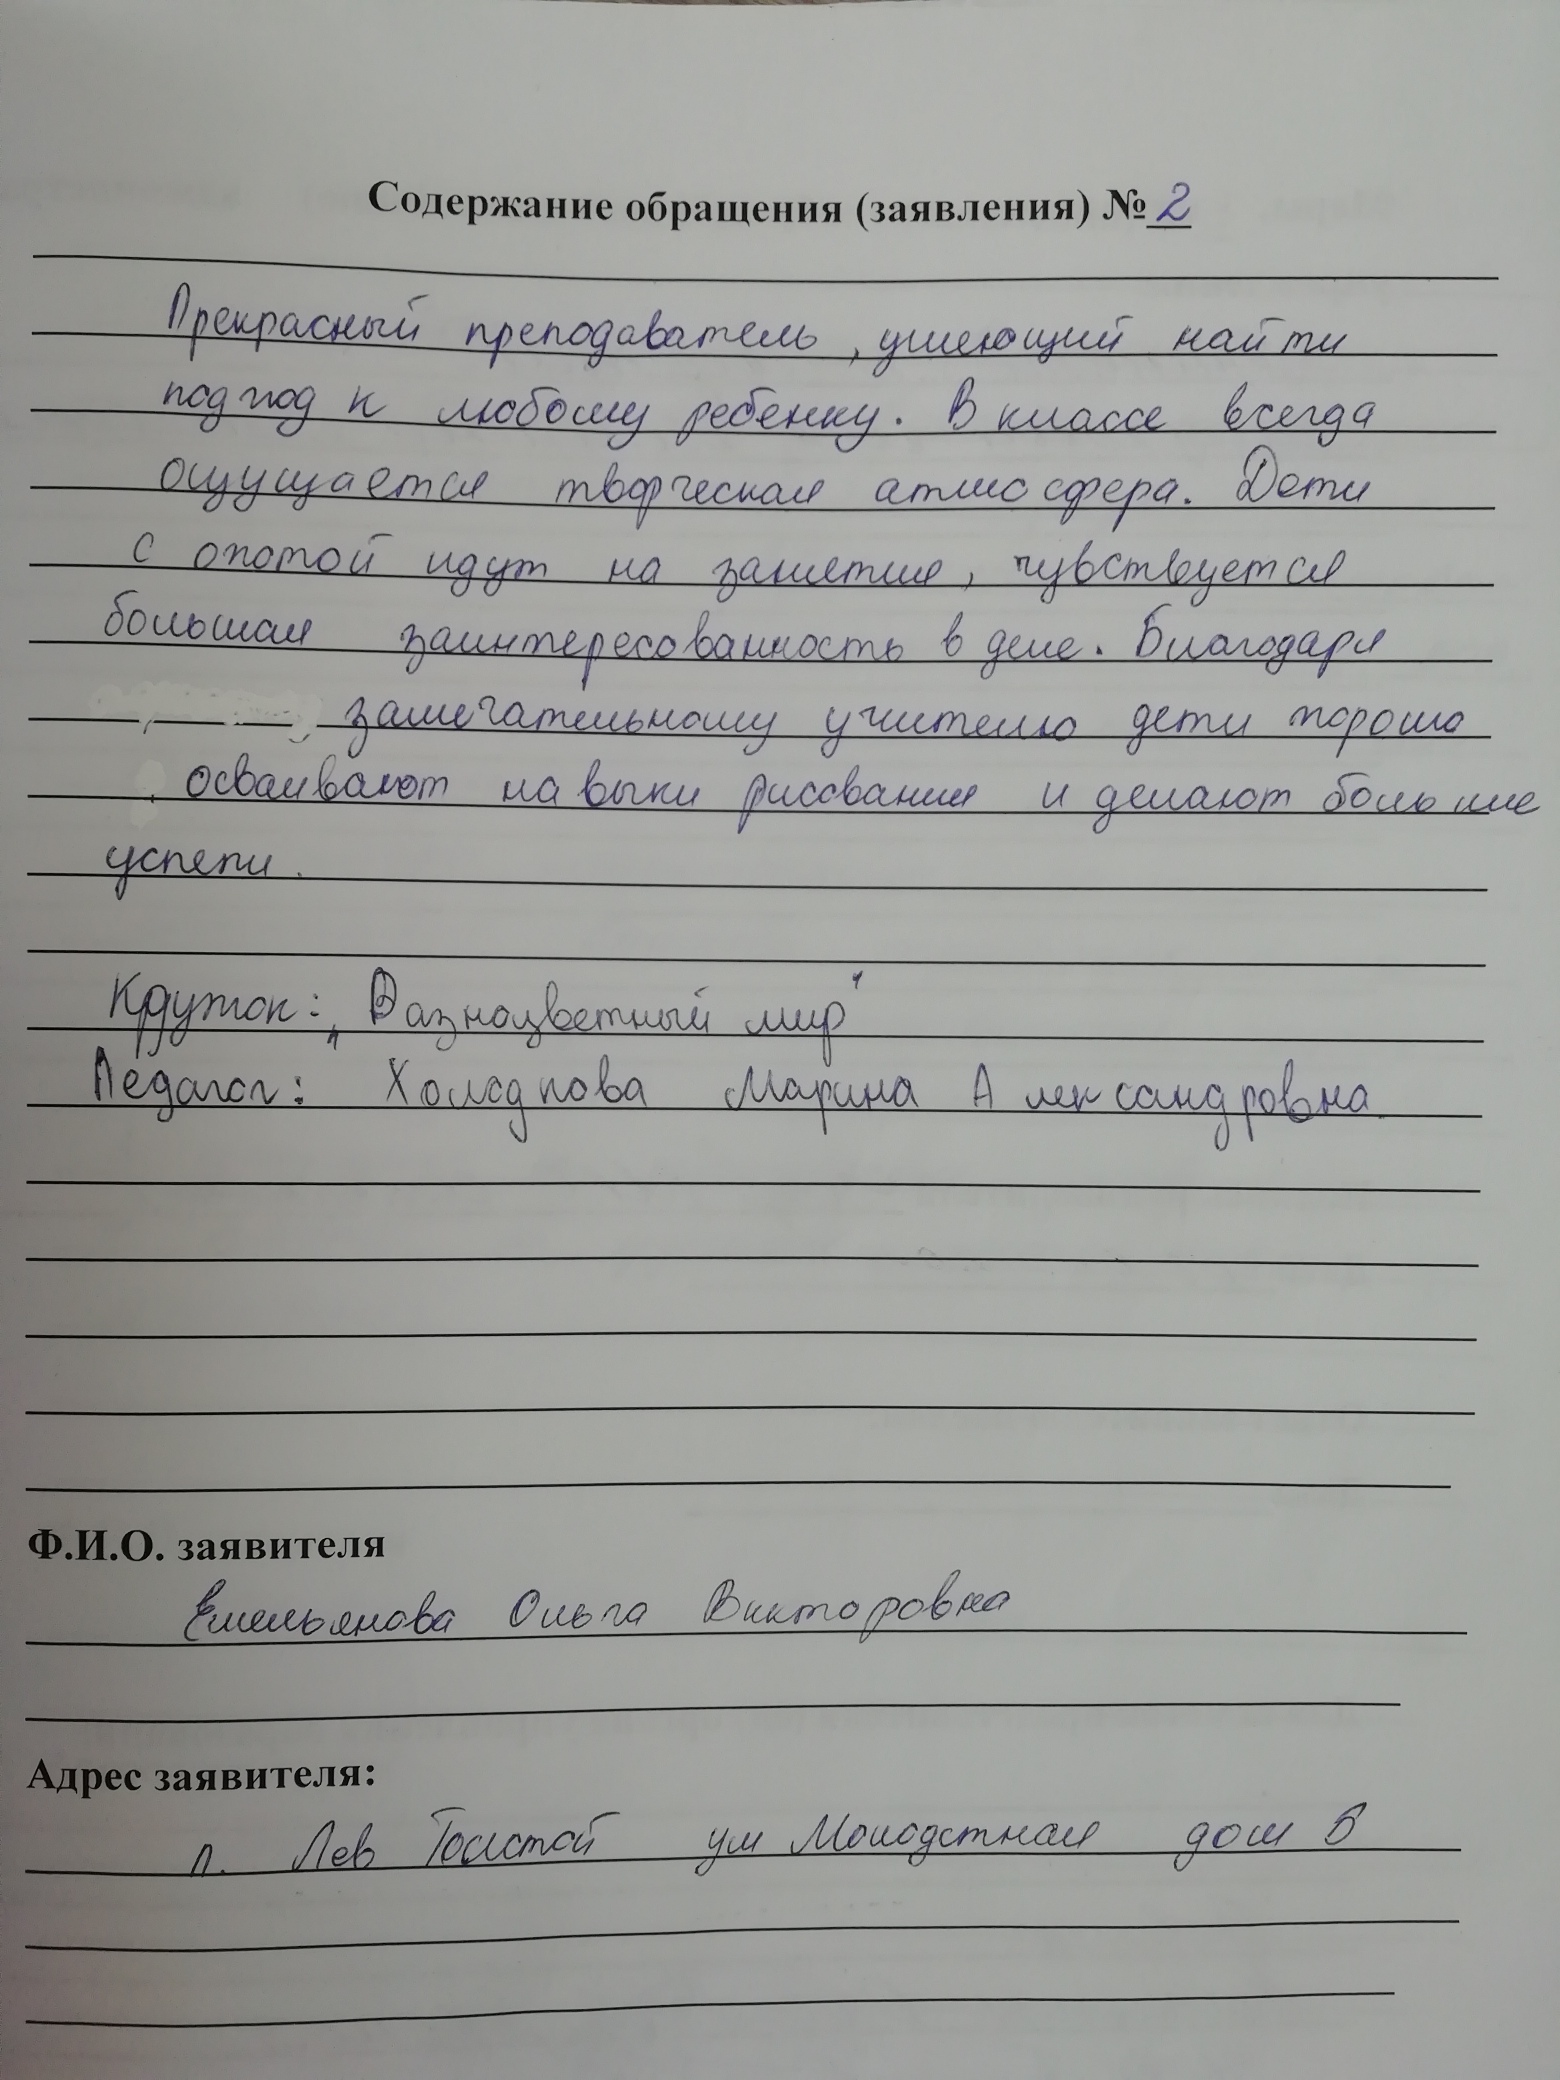 Содержание обращения (заявления) № 2
Прекрасный преподаватель, умеющий найти
подход к любому ребенку. В классе всегда
ощущается творческая атмосфера. Дети
с охотой идут на занятия, чувствуется
большая заинтересованность в деле. Благодаря
замечательному учителю дети хорошо
осваивают навыки рисования и делают большие
успехи.
Кружок: „Разноцветный мир"
Педагог: Марина Александровна
Ф.И.О. заявителя
Емельянова Ольга Викторовна
Адрес заявителя:
п. Лев Толстой ул Молодежная дом